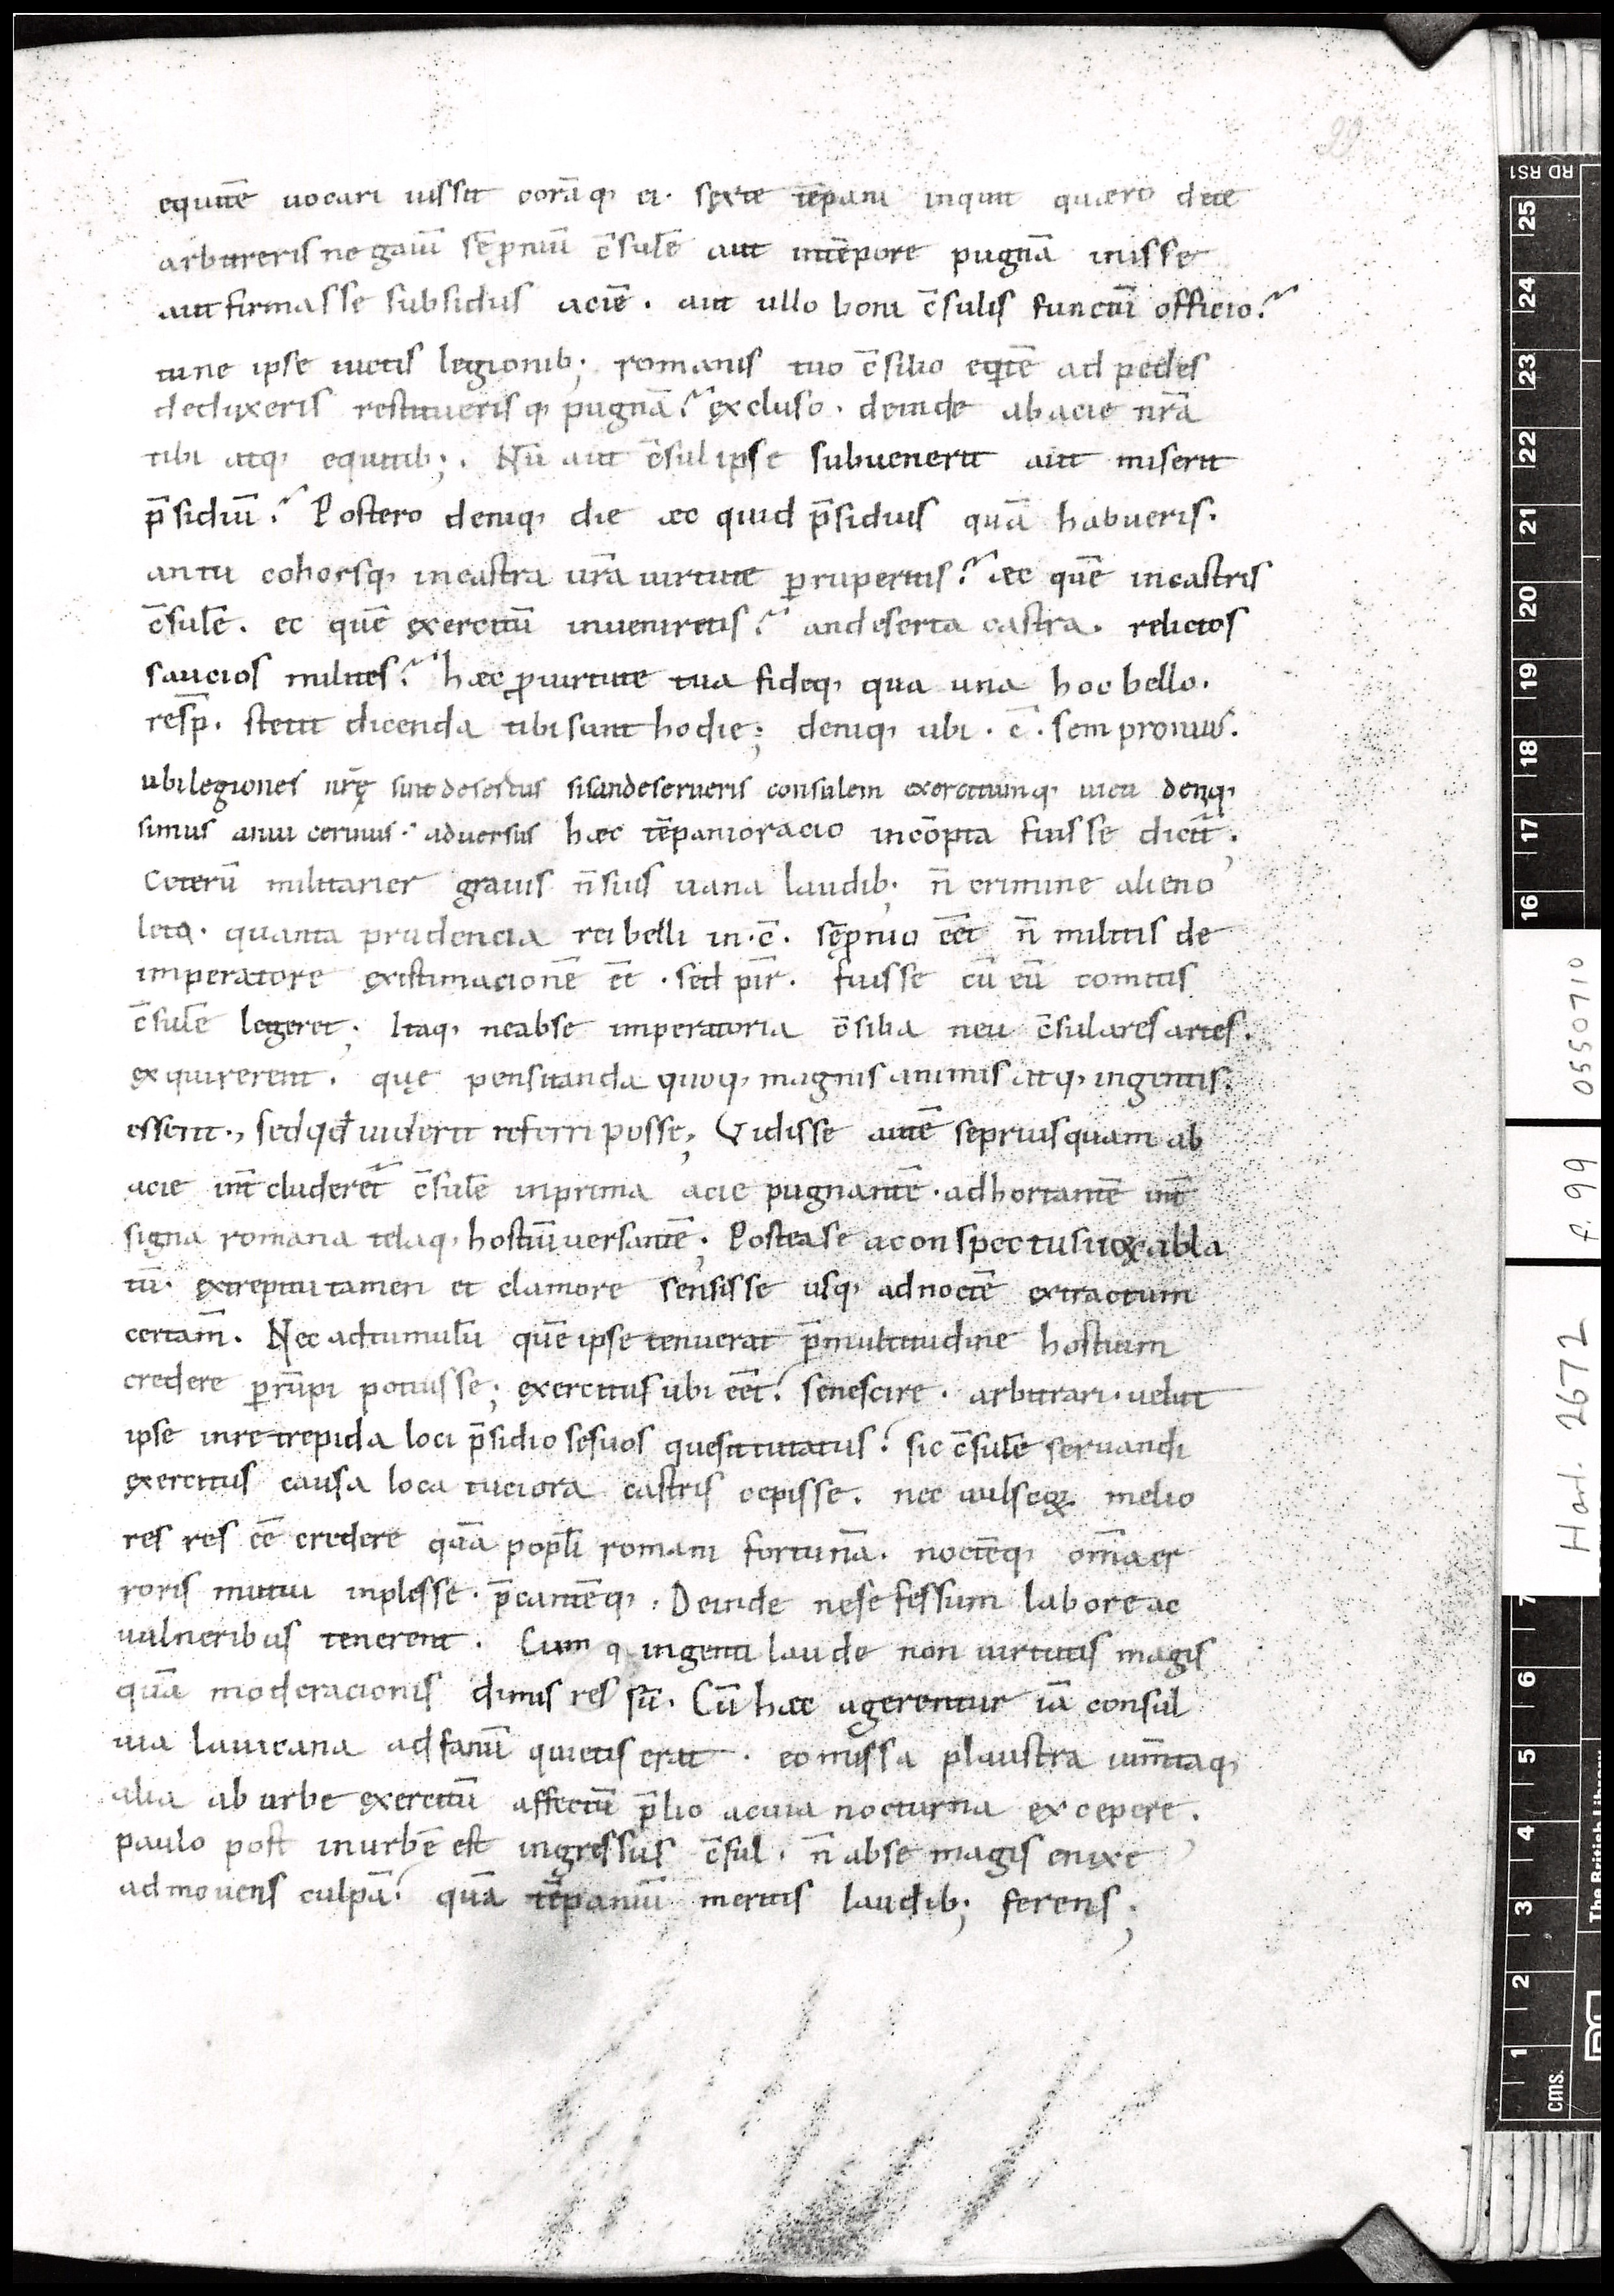 equitē uocari iussit corāq; ei. sęxte tēpani inquit quæro dete
arbitreris ne gaiū sēproniū c̄sulē aut intēpore pugnā inisse
aut firmasse subsidiis aciē. aut ullo boni c̄sulis functū officio?
tune ipse uictis legionib; romanis tuo c̄silio eqitē ad pedes
deduxeris restitueris q; pugnā? ęxcluso. deinde abacie nr̄a
tibi atq; equitib;. Nū aut c̄sul ipse subuenerit aut miserit
p̄sidiū? Postero deniq; die æc quid p̄sidiis quā habueris.
antu cohorsq; incastra ur̄a uirtute ꝑruperitis? æc quē incastris
c̄sulē. ec quē ęxercitū inueniretis? andeserta castra. relictos
saucios milites? hæc ꝓuirtute tua fideq; qua una hoc bello.
resp̄. stetit dicenda tibi sunt hodie; deniq; ubi. c̄. sempronius.
ubi legiones nr̄ę sint desertus sisandeserueris consulem exercitumq; uicti denq;
simus anui cerimus? aduersus hæc tēpanioracio incōpta fuisse dicit̄;
Ceterū militarier grauis n̄ suis uana laudib; n̄ crimine alieno
leta. quanta prudencia rei belli in. c̄. sēpronio eēt n̄ militis de
imperatore ęxistimacionē eē. sed pir̄. fuisse cū eū comitiis
c̄sulē legeret; Itaq; neabse imperatoria c̄silia neu c̄sulares artes.
ęxquirerent. quę pensitanda quoq; magnis animis atq; ingeniis.
essent., sed qd̄ uiderit referri posse; Vidisse autē sepriusquam ab
acie int̄cluderet̄ c̄sulē inprima acie pugnantē. adhortantē int̄
signa romana telaq; hostiū uersantē; Postease aconspectusuoꝝ abla
tū. ęxtrepitu tamen et clamore sensisse usq; adnoctē ęxtractum
certam̄. Nec adtumulū quē ipse tenuerat p̄multitudine hostium
credere ꝑrūpi potuisse; ęxercitus ubi eēt? senescire. arbitrari. uelut
ipse inre trepida loci p̄sidio sesuos quesit tutatus? sic c̄sulē seruandi
ęxercitus causa loca tuciora castris cepisse. nec uulscoꝝ melio
res res eē credere quā popl̄i romani fortunā. noctēq; om̄ia er
roris mutui inplesse. p̄cantēq;. Deinde nese fessum labore ac
uulneribus tenerent. Cum q; ingenti laude non uirtutis magis
quā moderacionis dimis res sū. Cū hæc agerentur iā consul
uia lauicana adfanū quietis erat. eo missa plaustra ium̄taq;
alia ab urbe ęxercitū affectū p̄lio acuia nocturna excepere.
paulo post inurbē est ingressus c̄sul. n̄ abse magis enixe
admouens culpā? quā tēpaniū meritis laudib; ferens;